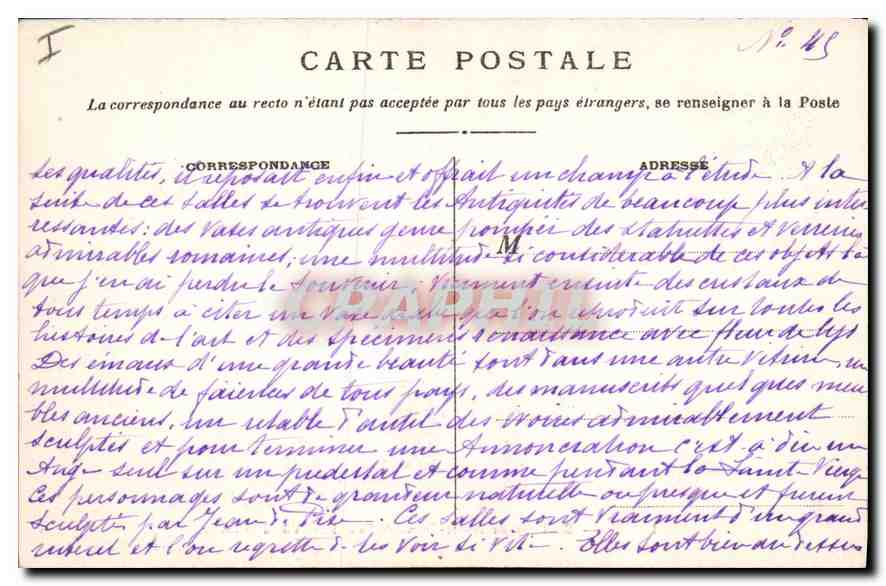 I
No. 45
CARTE POSTALE
La correspondance au recto n'étant pas acceptée par tous les pays étrangers, se renseigner à la Poste
CORRESPONDANCE
ADRESSE
M
ses qualités, il reposait enfin et offrait un champ à l'étude. A la
suite de ces salles se trouvent les Antiquités de beaucoup plus inté
ressantes: des vases antiques genre pompéi des statuettes et verreries
admirables romaines, une multitude si considérable de ces objets là
que j'en ai perdu le souvenir, viennent ensuite des cristaux de
tous temps à citer un vase arabe que l'on reproduit sur toutes les
histoires de l'art et des specimens renaissance avec fleur de lys
Des émaux d'une grande beauté sont dans une autre vitrine, une
multitude de faiences de tous pays, des manuscrits quelques meu
bles anciens, un retable d'autel des ivoires admirablement
sculptés et pour terminer une Annonciation c'est à dire un
Ange seul sur un piedestal et comme pendant la Sainte Vierge
Ces personnages sont de grandeur naturelle ou presque et furent
sculptés par Jean de Pise. Ces salles sont vraiment d'un grand
interet et l'on regrette de les voir si vite. Elles sont bien au dessus
CPAPHIL